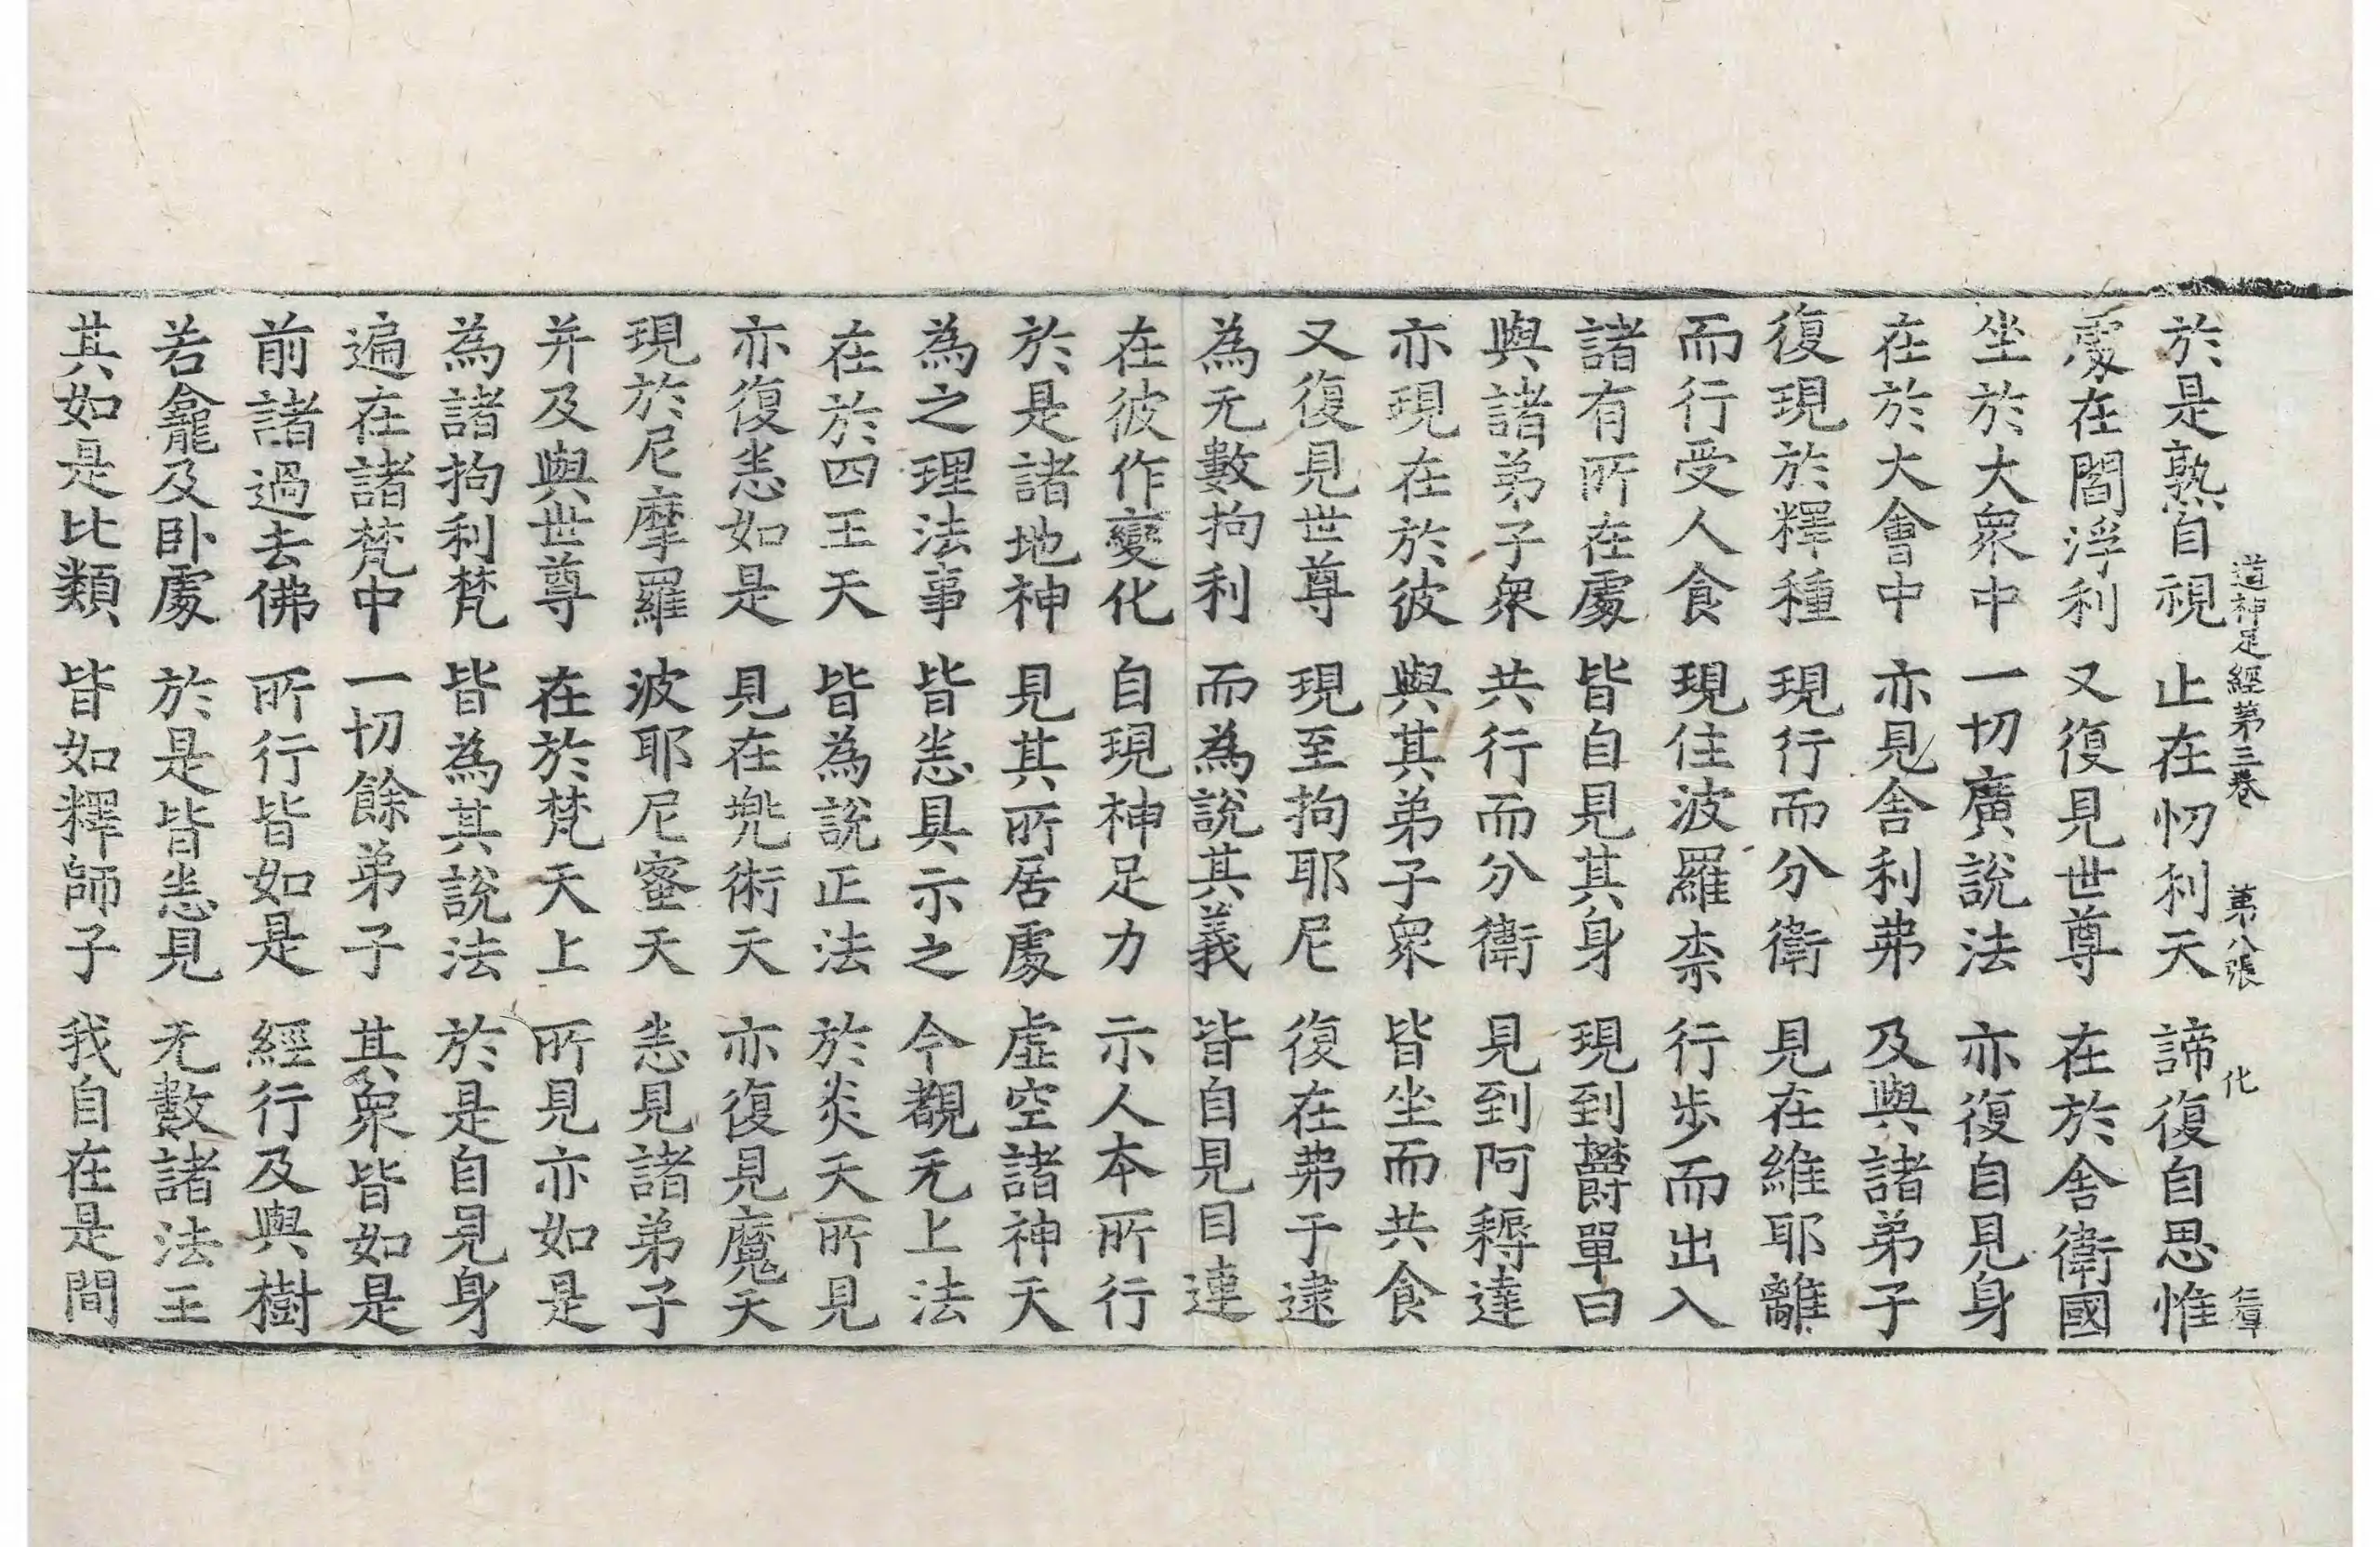 道神足經第三卷　第八張　化　仁章
於是熟自視　止在忉利天　諦復自思惟
處在閻浮利　又復見世尊　在於舍衛國
坐於大衆中　一切廣說法　亦復自見身
在於大會中　亦見舍利弗　及與諸弟子
復現於釋種　現行而分衛　見在維耶離
而行受人食　現住波羅柰　行步而出入
諸有所在處　皆自見其身　現到欝單曰
與諸弟子衆　共行而分衛　見到阿耨達
亦現在於彼　與其弟子衆　皆坐而共食
又復見世尊　現至拘耶尼　復在弗于逮
為无數拘利　而為說其義　皆自見目連
在彼作變化　自現神足力　示人本所行
於是諸地神　見其所居處　虛空諸神天
為之理法事　皆恙具示之　今觀无上法
在於四王天　皆為說正法　於炎天所見
亦復恙如是　見在兜術天　亦復見魔天
現於尼摩羅　波耶尼蜜天　恙見諸弟子
并及與世尊　在於梵天上　所見亦如是
為諸拘利梵　皆為其說法　於是自見身
遍在諸梵中　一切餘弟子　其衆皆如是
前諸過去佛　所行皆如是　經行及與樹
若龕及卧處　於是皆恙見　无數諸法王
其如是比類　皆如釋師子　我自在是間